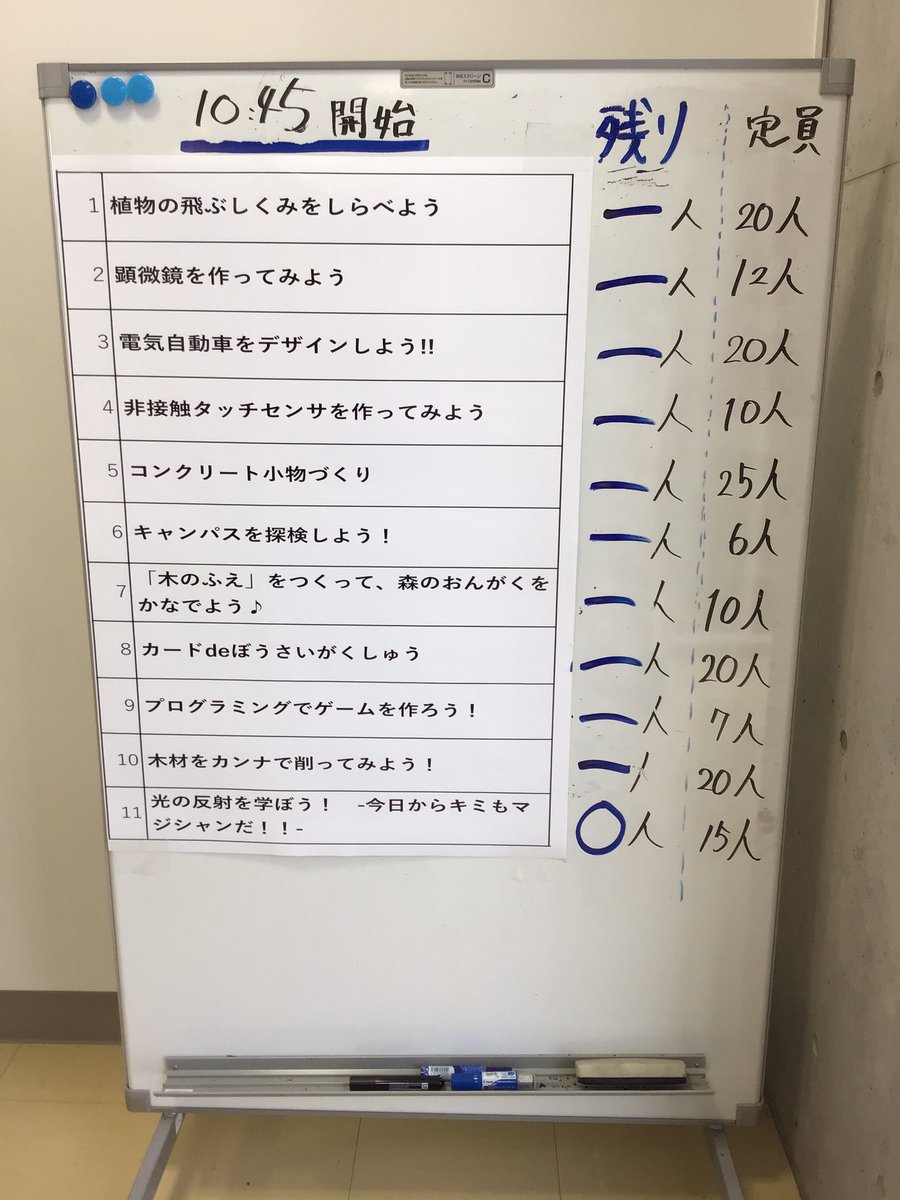 10:45 開始 残り 定員
1 植物の飛ぶしくみをしらべよう ー人 20人
2 顕微鏡を作ってみよう ー人 12人
3 電気自動車をデザインしよう!! ー人 20人
4 非接触タッチセンサを作ってみよう ー人 10人
5 コンクリート小物づくり ー人 25人
6 キャンパスを探検しよう！ ー人 6人
7 「木のふえ」をつくって、森のおんがくを
かなでよう♪ ー人 10人
8 カードdeぼうさいがくしゅう ー人 20人
9 プログラミングでゲームを作ろう！ ー人 7人
10 木材をカンナで削ってみよう！ ー人 20人
11 光の反射を学ぼう！　-今日からキミもマ
ジシャンだ！！- ○人 15人